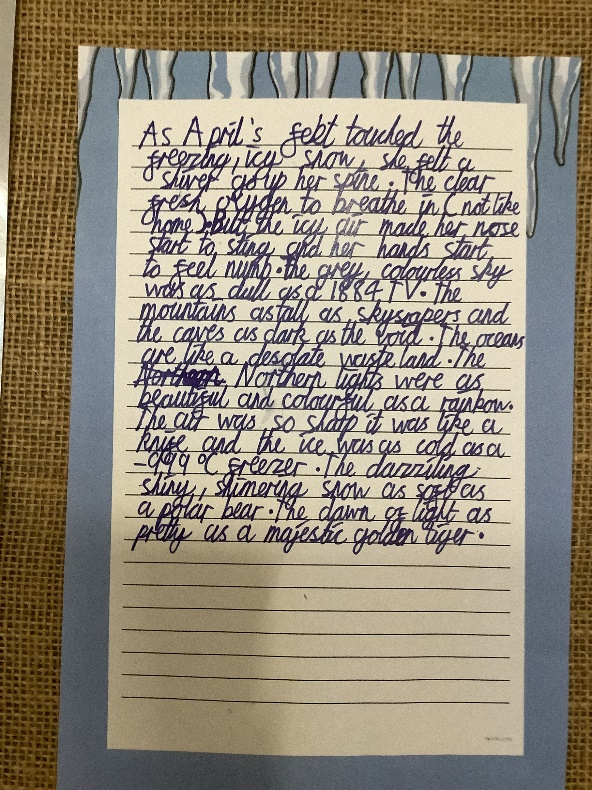 As April's febt touched the
freezing, icy snow, she felt a
shiver go up her spine. The clear
fresh oxygen to breathe in (not like
home) but the icy air made her nose
start to sting and her hands start
to feel numb. the grey, colourless sky
was as dull as a 1884 TV. The
mountains as tall as skysrapers and
the caves as dark as the void. The oceans
are like a desolate waste land. The
Northern lights were as
beautiful and colourful as a rainbow.
The air was so sharp it was like a
knife and the ice was as cold as a
-999°C freezer. The dazziling,
shiny, shimering snow as soft as
a polar bear. The dawn of light as
pretty as a majestic golden tiger.